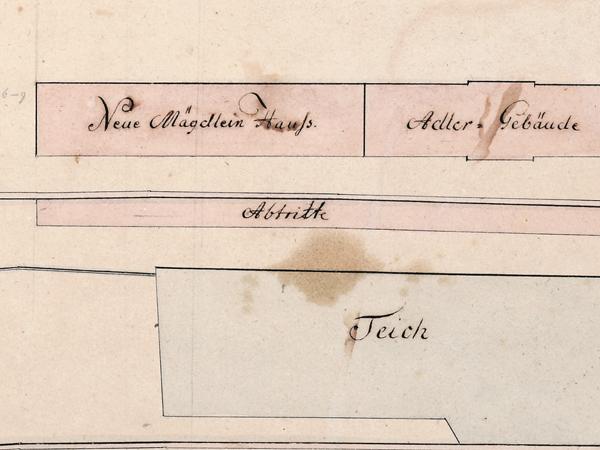 Neue Mägdlein Hauß.
Adler-Gebäude
Abtritte
Teich